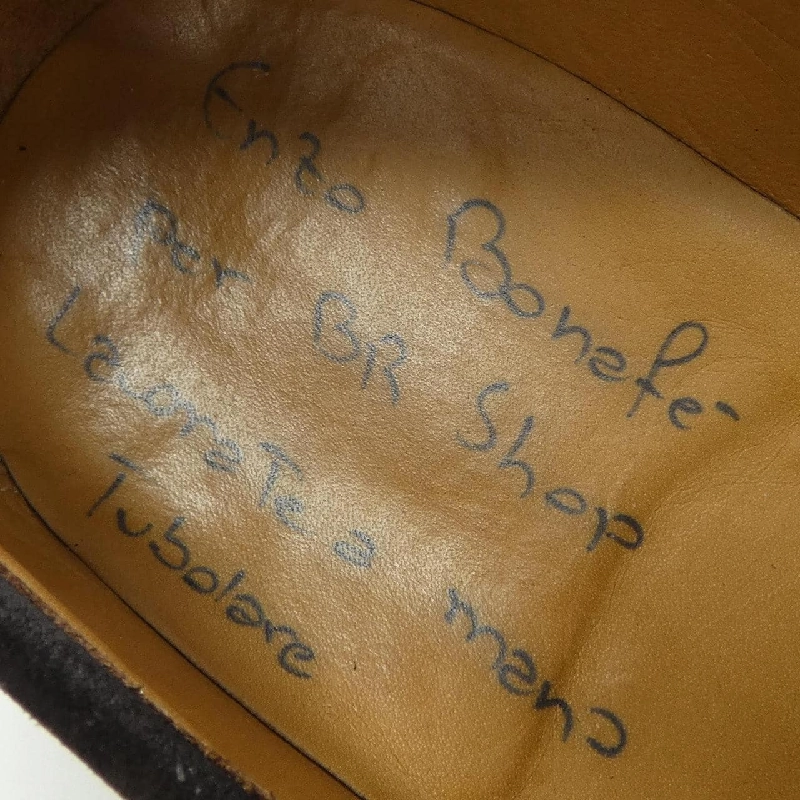 Enzo Bonafé
per BR Shop
LavoraTe a mano
Tubolare